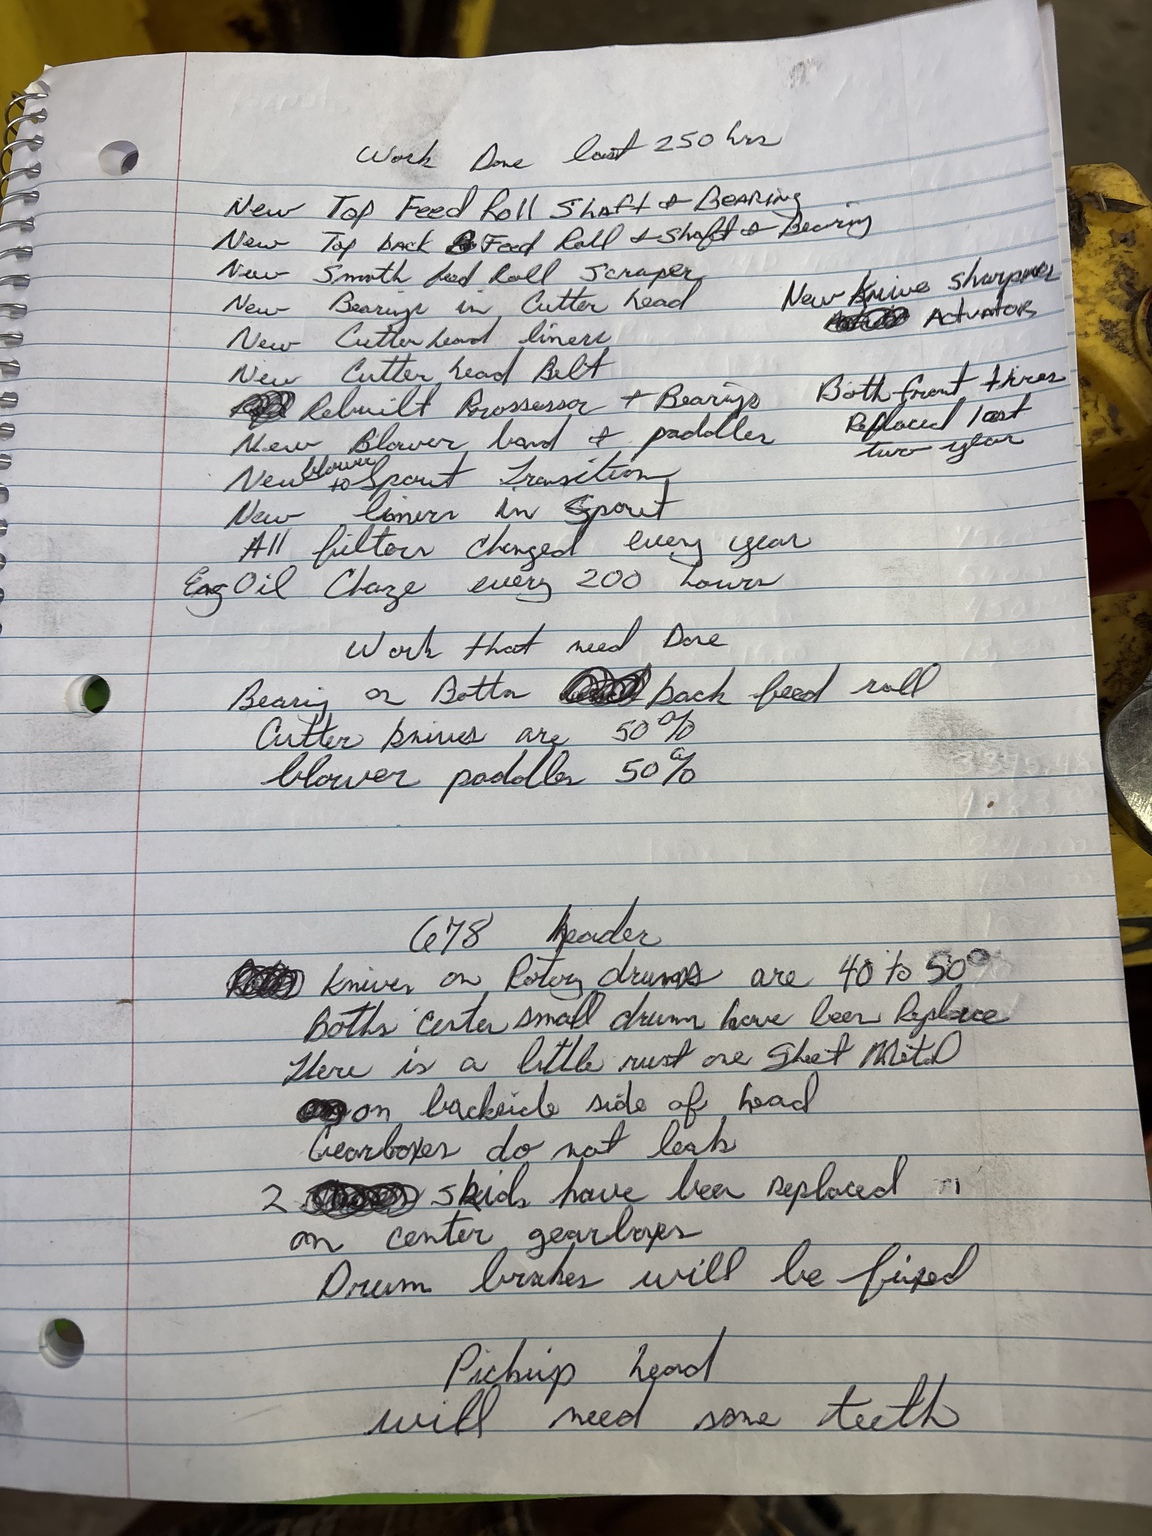 Work Done last 250 hrs
New Top Feed Roll Shaft + Bearing
New Top back Feed Roll + Shaft + Bearing
New Smooth feed Roll Scraper
New Bearings in Cutter head
New Knive sharpner
Actuators
New Cutterhead liners
New Cutter head Belt
Rebuilt Prossessor + Bearings
Both front tires
Replaced last
two year
New Blower band + paddles
New blower to Spout Transition
New liners in Spout
All filters changed every year
Eng Oil Change every 200 hours
Work that need Done
Bearing on Bottom back feed roll
Cutter knives are 50%
blower paddles 50%
678 header
knives on Rotory drums are 40 to 50%
Boths center small drums have been Replace
There is a little rust one Sheet Metal
on backside side of head
Gearboxes do not leak
2 skids have been replaced
on center gearboxes
Drum brakes will be fixed
Pickup head
will need some teeth